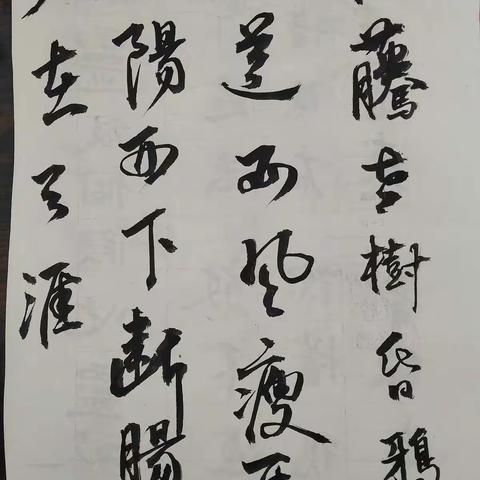 藤老樹昏鴉
道西風瘦
陽西下斷腸
在天涯